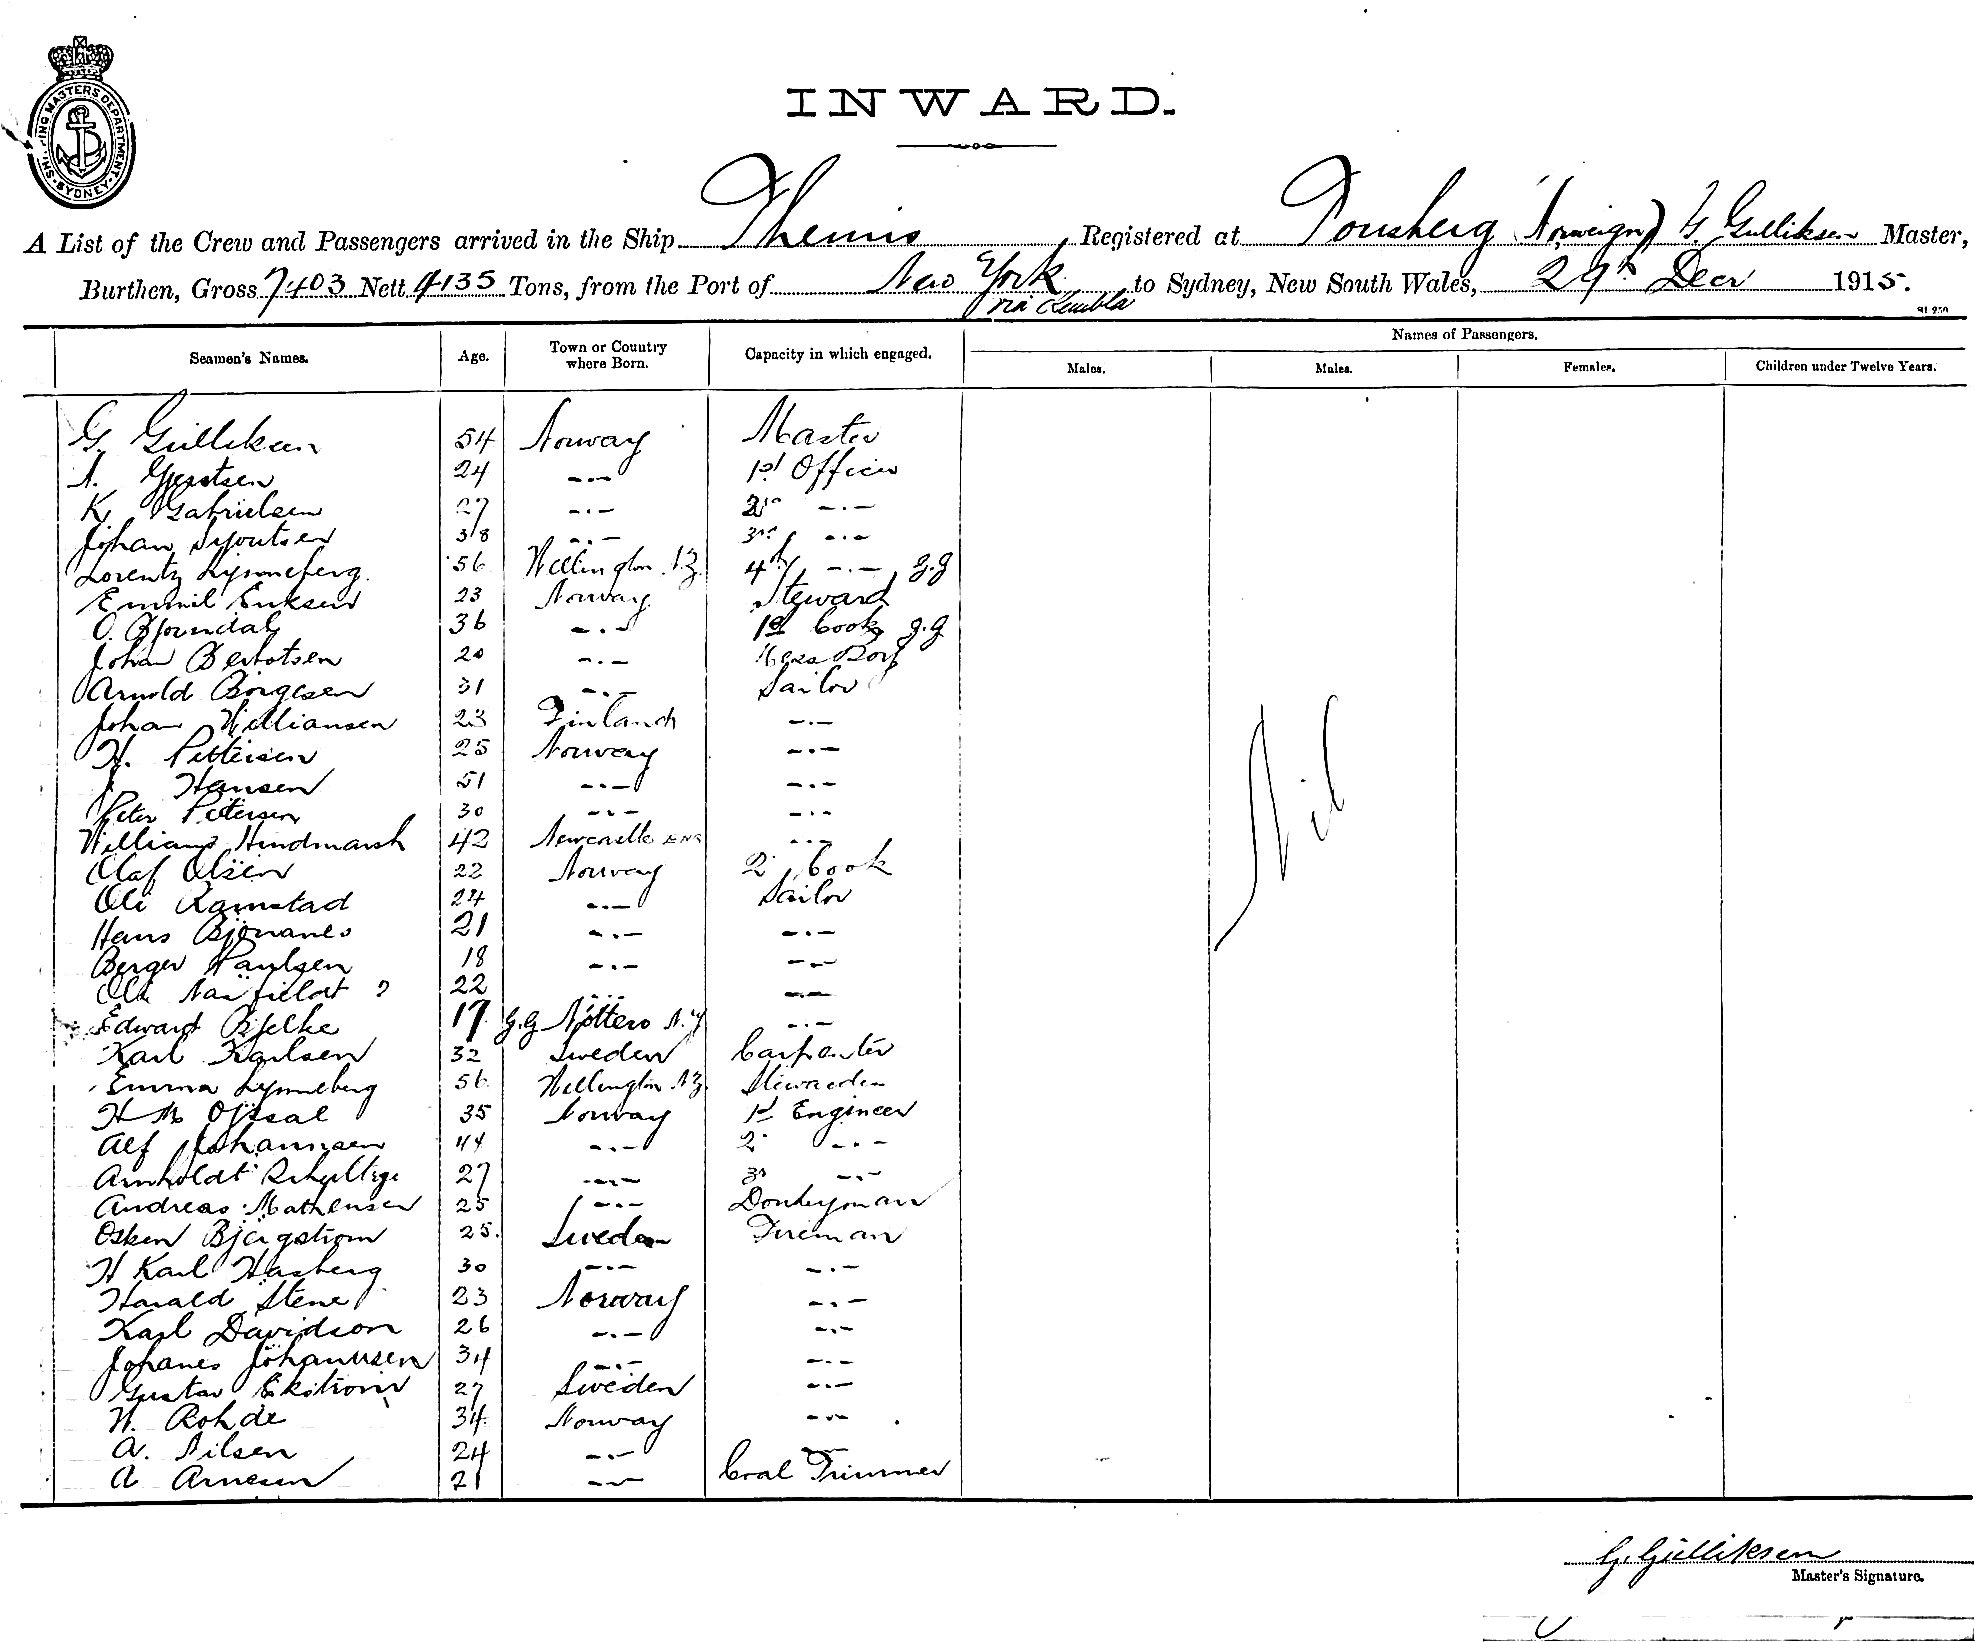 SHIPPING MASTERS DEPARTMENT · SYDNEY ·
INWARD.
A List of the Crew and Passengers arrived in the Ship Themis Registered at Tonsberg (Norweign) G. Gulliksen Master,
Burthen, Gross 7403 Nett 4135 Tons, from the Port of New York to Sydney, New South Wales, 29th Decr 1915.
via Kembla
Names of Passengers.
Seamen's Names. Age. Town or Country where Born. Capacity in which engaged. Males. Males. Females. Children under Twelve Years.
G. Gulliksen 54 Norway Master
A. Gjertsen 24 -.- 1st Officer
K. Gabrielsen 27 -.- 2nd -.-
Johan 38 -.- 3rd -.-
Lorentz Lynneberg. 56 Wellington N.Z. 4th -.- G.G
Emmil Eriksen 23 Norway Steward
O. Bjorndal 36 -.- 1st Cook G.G
Johan Berntsen 20 -.- Mess Boy
Arnold Borgesen 31 -.- Sailor
Johan Williansen 23 Finland -.-
H. Pettersen 25 Norway -.-
J Hansen 51 -.- -.-
Peter Pettersen 30 -.- -.-
William Hindmarsh 42 Newcastle ENG -.-
Olaf Olsen 22 Norway 2 Cook
Ole Ramstad 24 -.- Sailor
Hans 21 -.- -.-
Berger Paulsen 18 -.- -.-
Ole ? 22 -.- -.-
Edward Bjelke 17 G.G Nøttero N.Y -.-
Karl Karlsen 32 Sweden Carpenter
Emma Lynneberg 56 Wellington N.Z. Stewardess
H M 35 Norway 1st Engineer
Alf Johannsen 44 -.- 2 -.-
Arnholdt 27 -.- 3rd -.-
Andreas Mathensen 25 -.- Donkeyman
Osken Bjergstrom 25. Sweden Fireman
H Karl Hasberg 30 -.- -.-
Harald Stene 23 Norway -.-
Karl Davidson 26 -.- -.-
Johanes Johannsen 34 -.- -.-
Gustav Ekstrom 27 Sweden -.-
W. Rohde 34 Norway -.-
A. Nilsen 24 -.- -.-
A Arnesen 21 -.- Coal Trimmer
Nil
G. Gulliksen
Master's Signature.